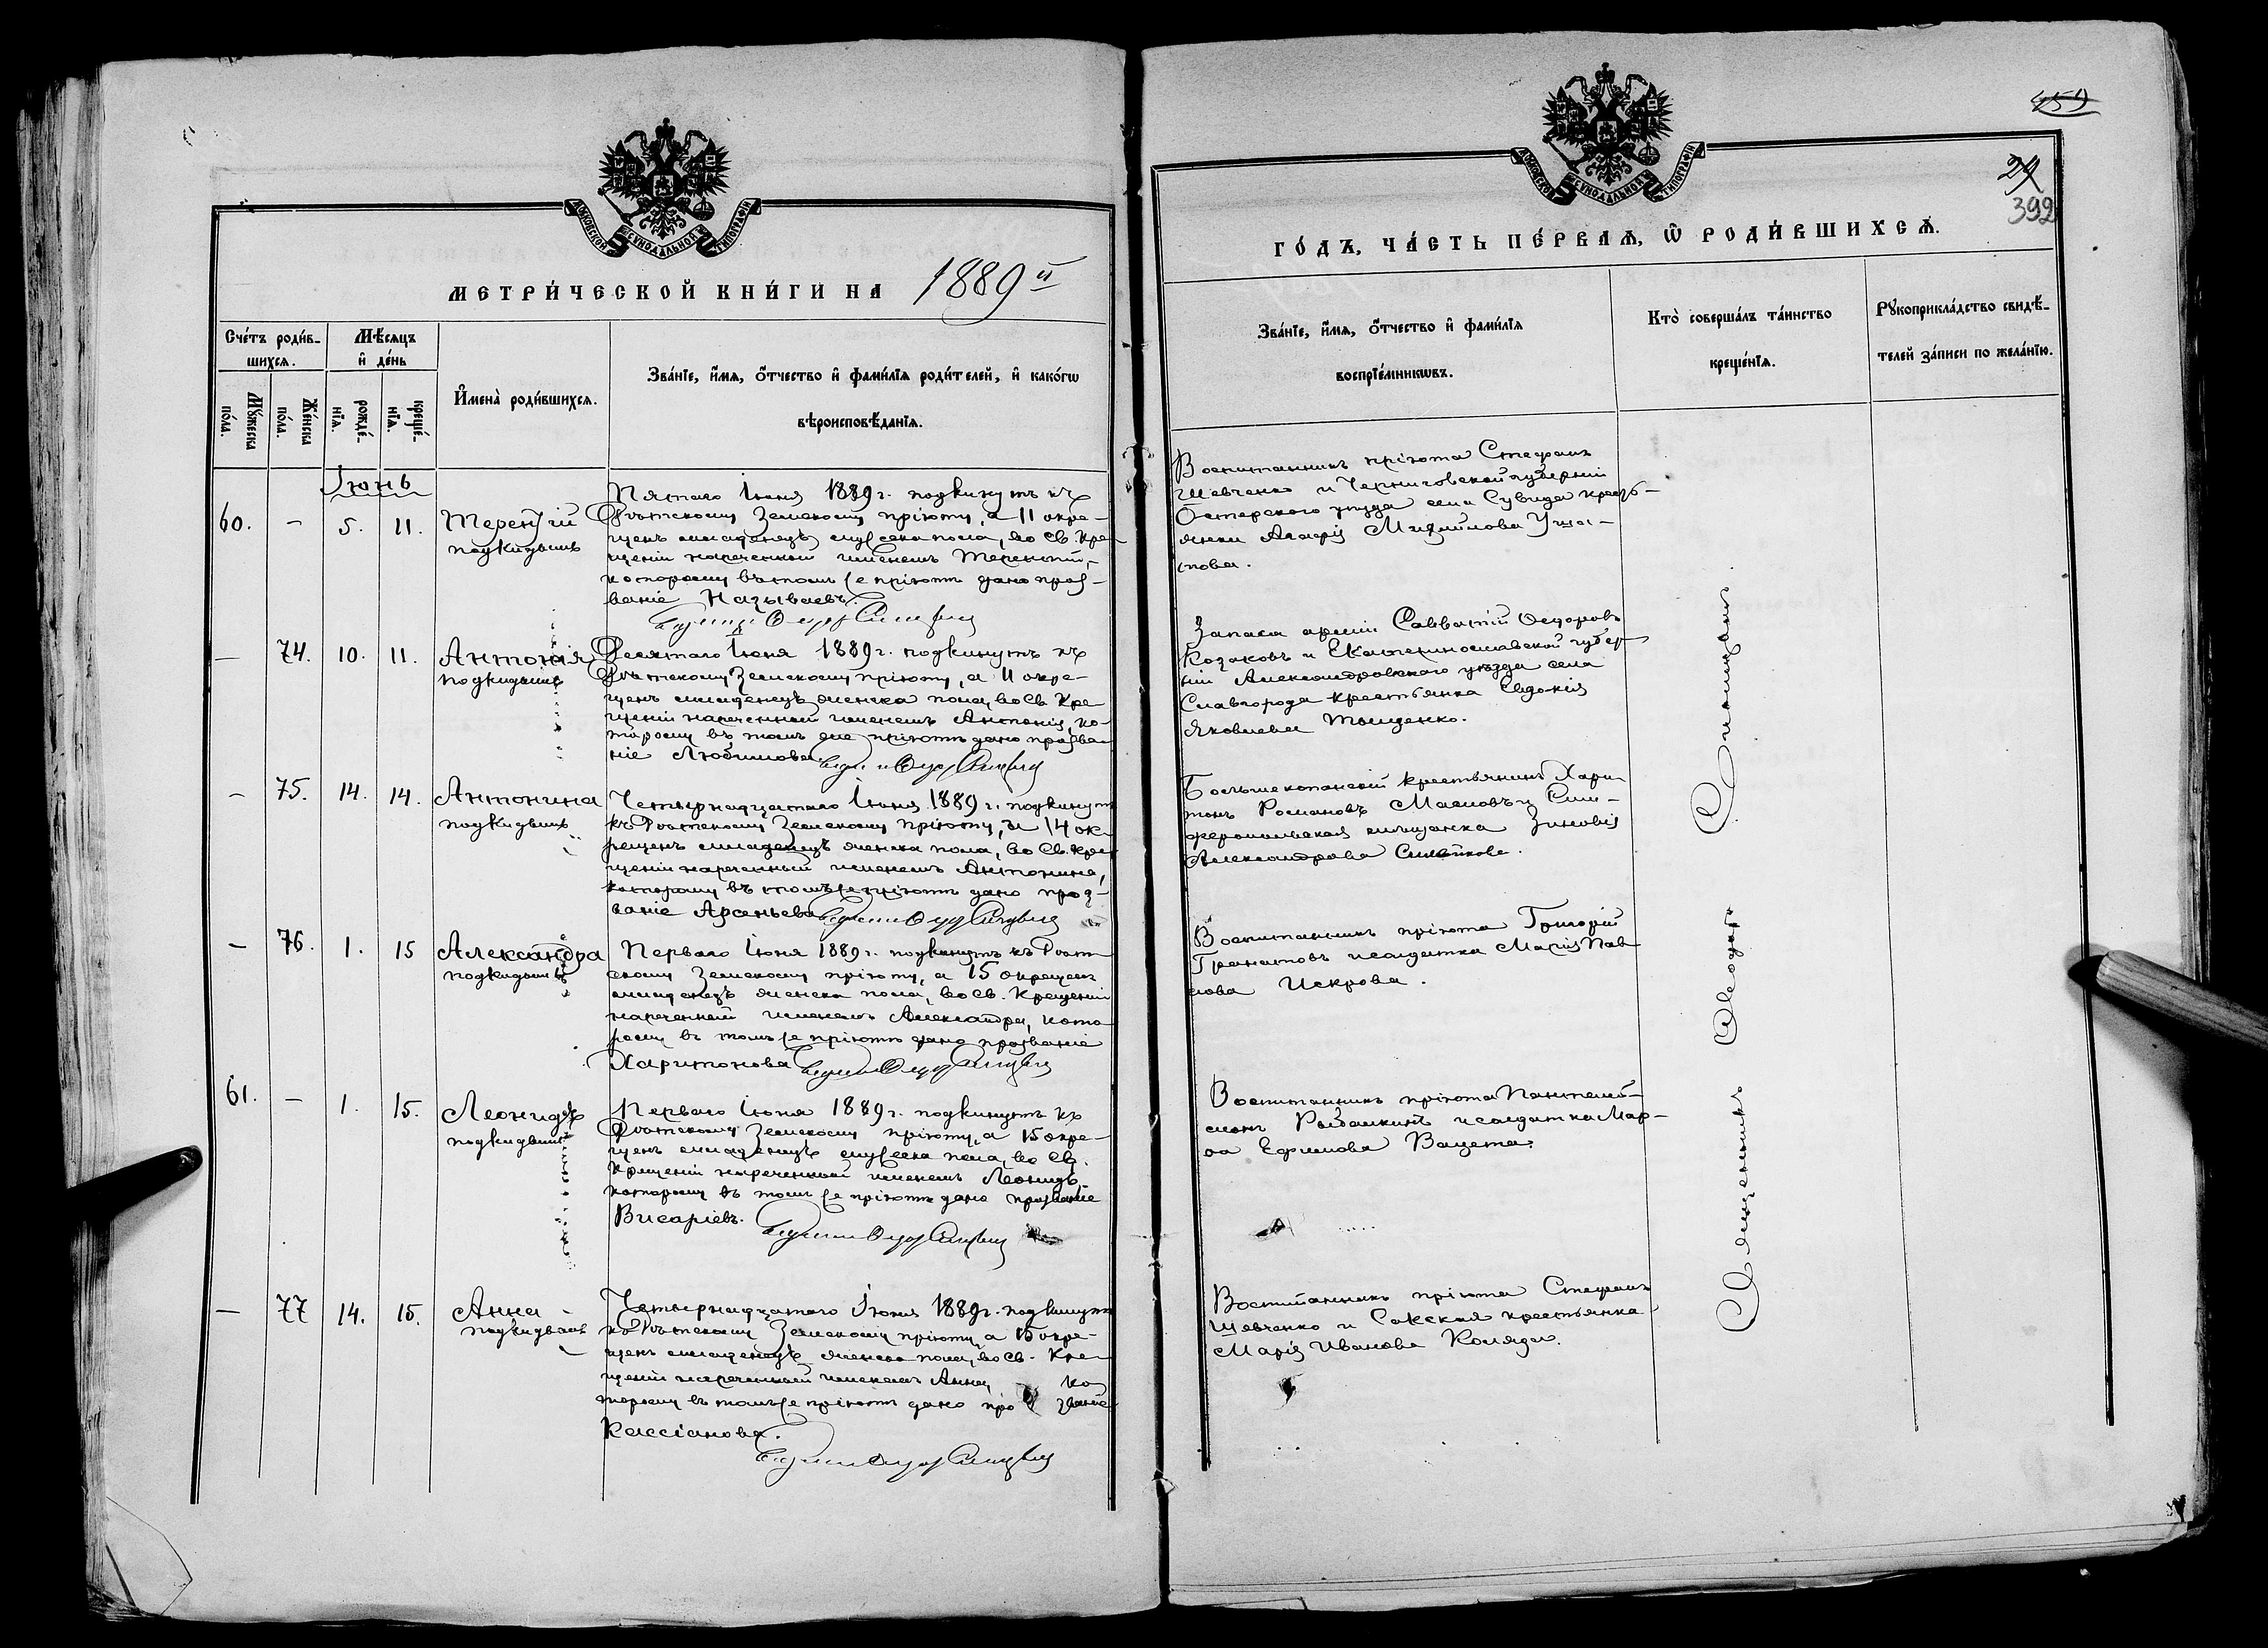 МОСКОВСКОЙ СУНОДАЛЬНОЙ ТИПОГРАФІИ
МЕТРИ́ЧЕСКОЙ КНИ́ГИ НА 1889 й
Сче́тъ роди́в-
шихсѧ.
Мѣ́сѧцъ
и҆ де́нь
И҆мена̀ роди́вшихсѧ.
Зва́нїе, и҆́мѧ, ѻ҆́тчество и҆ фами́лїѧ роди́телей, и҆ како́гѡ
вѣроисповѣ́данїѧ.
Мꙋ́жеска
по́ла.
Же́нска
по́ла.
рожде́-
нїѧ.
креще́-
нїѧ.
Іюнь
60. – 5. 11.
Терентій
подкидышъ
Пятаго Іюня 1889 г. подкинутъ къ
Дѣтскому Земскому пріюту, а 11 окре-
щенъ младенецъ мужеска пола, во Св. Кре-
щеніи нареченный именемъ Терентій,
которому въ томъ же пріютѣ дано проз-
ваніе Называевъ.
— 74. 10. 11.
Антонія
подкидышъ
Десятаго Іюня 1889 г. подкинутъ къ
Дѣтскому Земскому пріюту, а 11 окре-
щенъ младенецъ женска пола, во Св. Кре
щеніи нареченный именемъ Антонія, ко-
торому въ томъ же пріютѣ дано прозва-
ніе Любимова.
– 75. 14. 14.
Антонина
подкидышъ
Четырнадцатаго Іюня 1889 г. подкинутъ
къ Дѣтскому Земскому пріюту, а 14 ок-
рещенъ младенецъ женска пола, во Св. Кре-
щеніи нареченный именемъ Антонина,
которому въ томъ же пріютѣ дано проз-
ваніе Арсеньева
– 76. 1. 15
Александра
подкидышъ
Перваго Іюня 1889 г. подкинутъ къ Дѣт
скому Земскому пріюту, а 15 окрещенъ
младенецъ женска пола, во Св. Крещеніи
нареченный именемъ Александра, кото
рому въ томъ же пріютѣ дано прозваніе
Харитонова
61. – 1. 15.
Леонидъ
подкидышъ
Перваго Іюня 1889 г. подкинутъ къ
Дѣтскому Земскому пріюту, а 15 окре-
щенъ младенецъ мужеска пола, во Св.
Крещеніи нареченный именемъ Леонидъ,
которому въ томъ же пріютѣ дано прозваніе
Висаріевъ.
— 77 14. 15.
Анна
подкидышъ
Четырнадцатаго Іюня 1889 г. подкинутъ
къ Дѣтскому Земскому пріюту, а 15 окре-
щенъ младенецъ женска пола, во Св. Кре
щеніи нареченный именемъ Анна, ко
торому въ томъ же пріютѣ дано про званіе
Кассіанова.
459
29
392
МОСКОВСКОЙ СУНОДАЛЬНОЙ ТИПОГРАФІИ
ГО́ДЪ, ЧА́СТЬ ПЕ́РВАѦ, Ѽ РОДИ́ВШИХСѦ.
Зва́нїе, и҆́мѧ, ѻ҆́тчество и҆ фами́лїѧ
воспрїе́мникѡвъ.
Кто̀ соверша́лъ та́инство
креще́нїѧ.
Рꙋкоприкла́дство свидѣ́-
телей за́писи по жела́нїю.
Воспитанникъ пріюта Стефанъ
Шевченко и Черниговской губерніи
Остерского уѣзда села Сувида кресть-
янка Агафія Михайлова
Запаса арміи Савватій Ѳедоровъ
Козаковъ и Екатеринославской губер
ніи Александровскаго уѣзда села
Славгорода крестьянка Евдокія
Яковлева Тыщенко.
Большекопанскій крестьянинъ Хари-
тонъ Романовъ Масловъ и Сим-
феропольская мѣщанка Зиновія
Александрова
Воспитанникъ пріюта Григорій
Гранатовъ и солдатка Марія Пав
лова Искрова.
Воспитанникъ пріюта Пантелей-
монъ Рыбалкинъ и солдатка Мар-
ѳа Ефимова Вацета.
Воспитанникъ пріюта Стефанъ
Шевченко и Сакская крестьянка
Марія Иванова Коляда.
Священникъ Ѳеодоръ